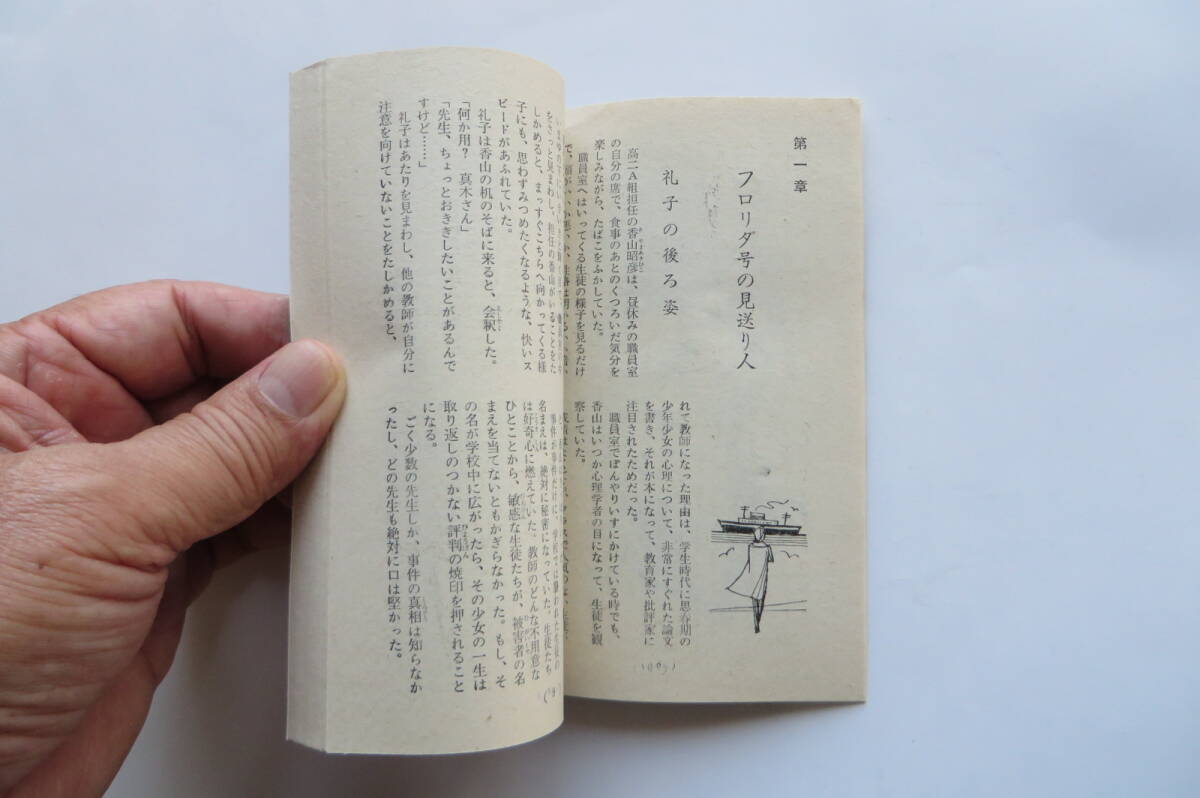 第一章
フロリダ号の見送り人
礼子の後ろ姿
高二A組担任の香山昭彦は、昼休みの職員室
の自分の席で、食事のあとのくつろいだ気分を
楽しみながら、たばこをふかしていた。
職員室へはいってくる生徒の様子を見るだけ
れて教師になった理由は、学生時代に思春期の
少年少女の心理について、非常にすぐれた論文
を書き、それが本になって、教育家や批評家に
注目されたためだった。
職員室でぼんやりいすにかけている時でも、
香山はいつか心理学者の目になって、生徒を観
察していた。
をさっと見まわし、担任の香山がいることをた
しかめると、まっすぐこちらへ向かってくる様
子にも、思わずみつめたくなるような、快いス
ピードがあふれていた。
礼子は香山の机のそばに来ると、会釈した。
「何か用？　真木さん」
「先生、ちょっとおききしたいことがあるんで
すけど……」
礼子はあたりを見まわし、他の教師が自分に
注意を向けていないことをたしかめると、
名まえは、絶対に秘密になっていた。生徒たち
は好奇心に燃えていた。教師のどんな不用意な
ひとことから、敏感な生徒たちが、被害者の名
まえを当てないともかぎらなかった。もし、そ
の名が学校中に広がったら、その少女の一生は
取り返しのつかない評判の焼印を押されること
になる。
ごく少数の先生しか、事件の真相は知らなか
ったし、どの先生も絶対に口は堅かった。